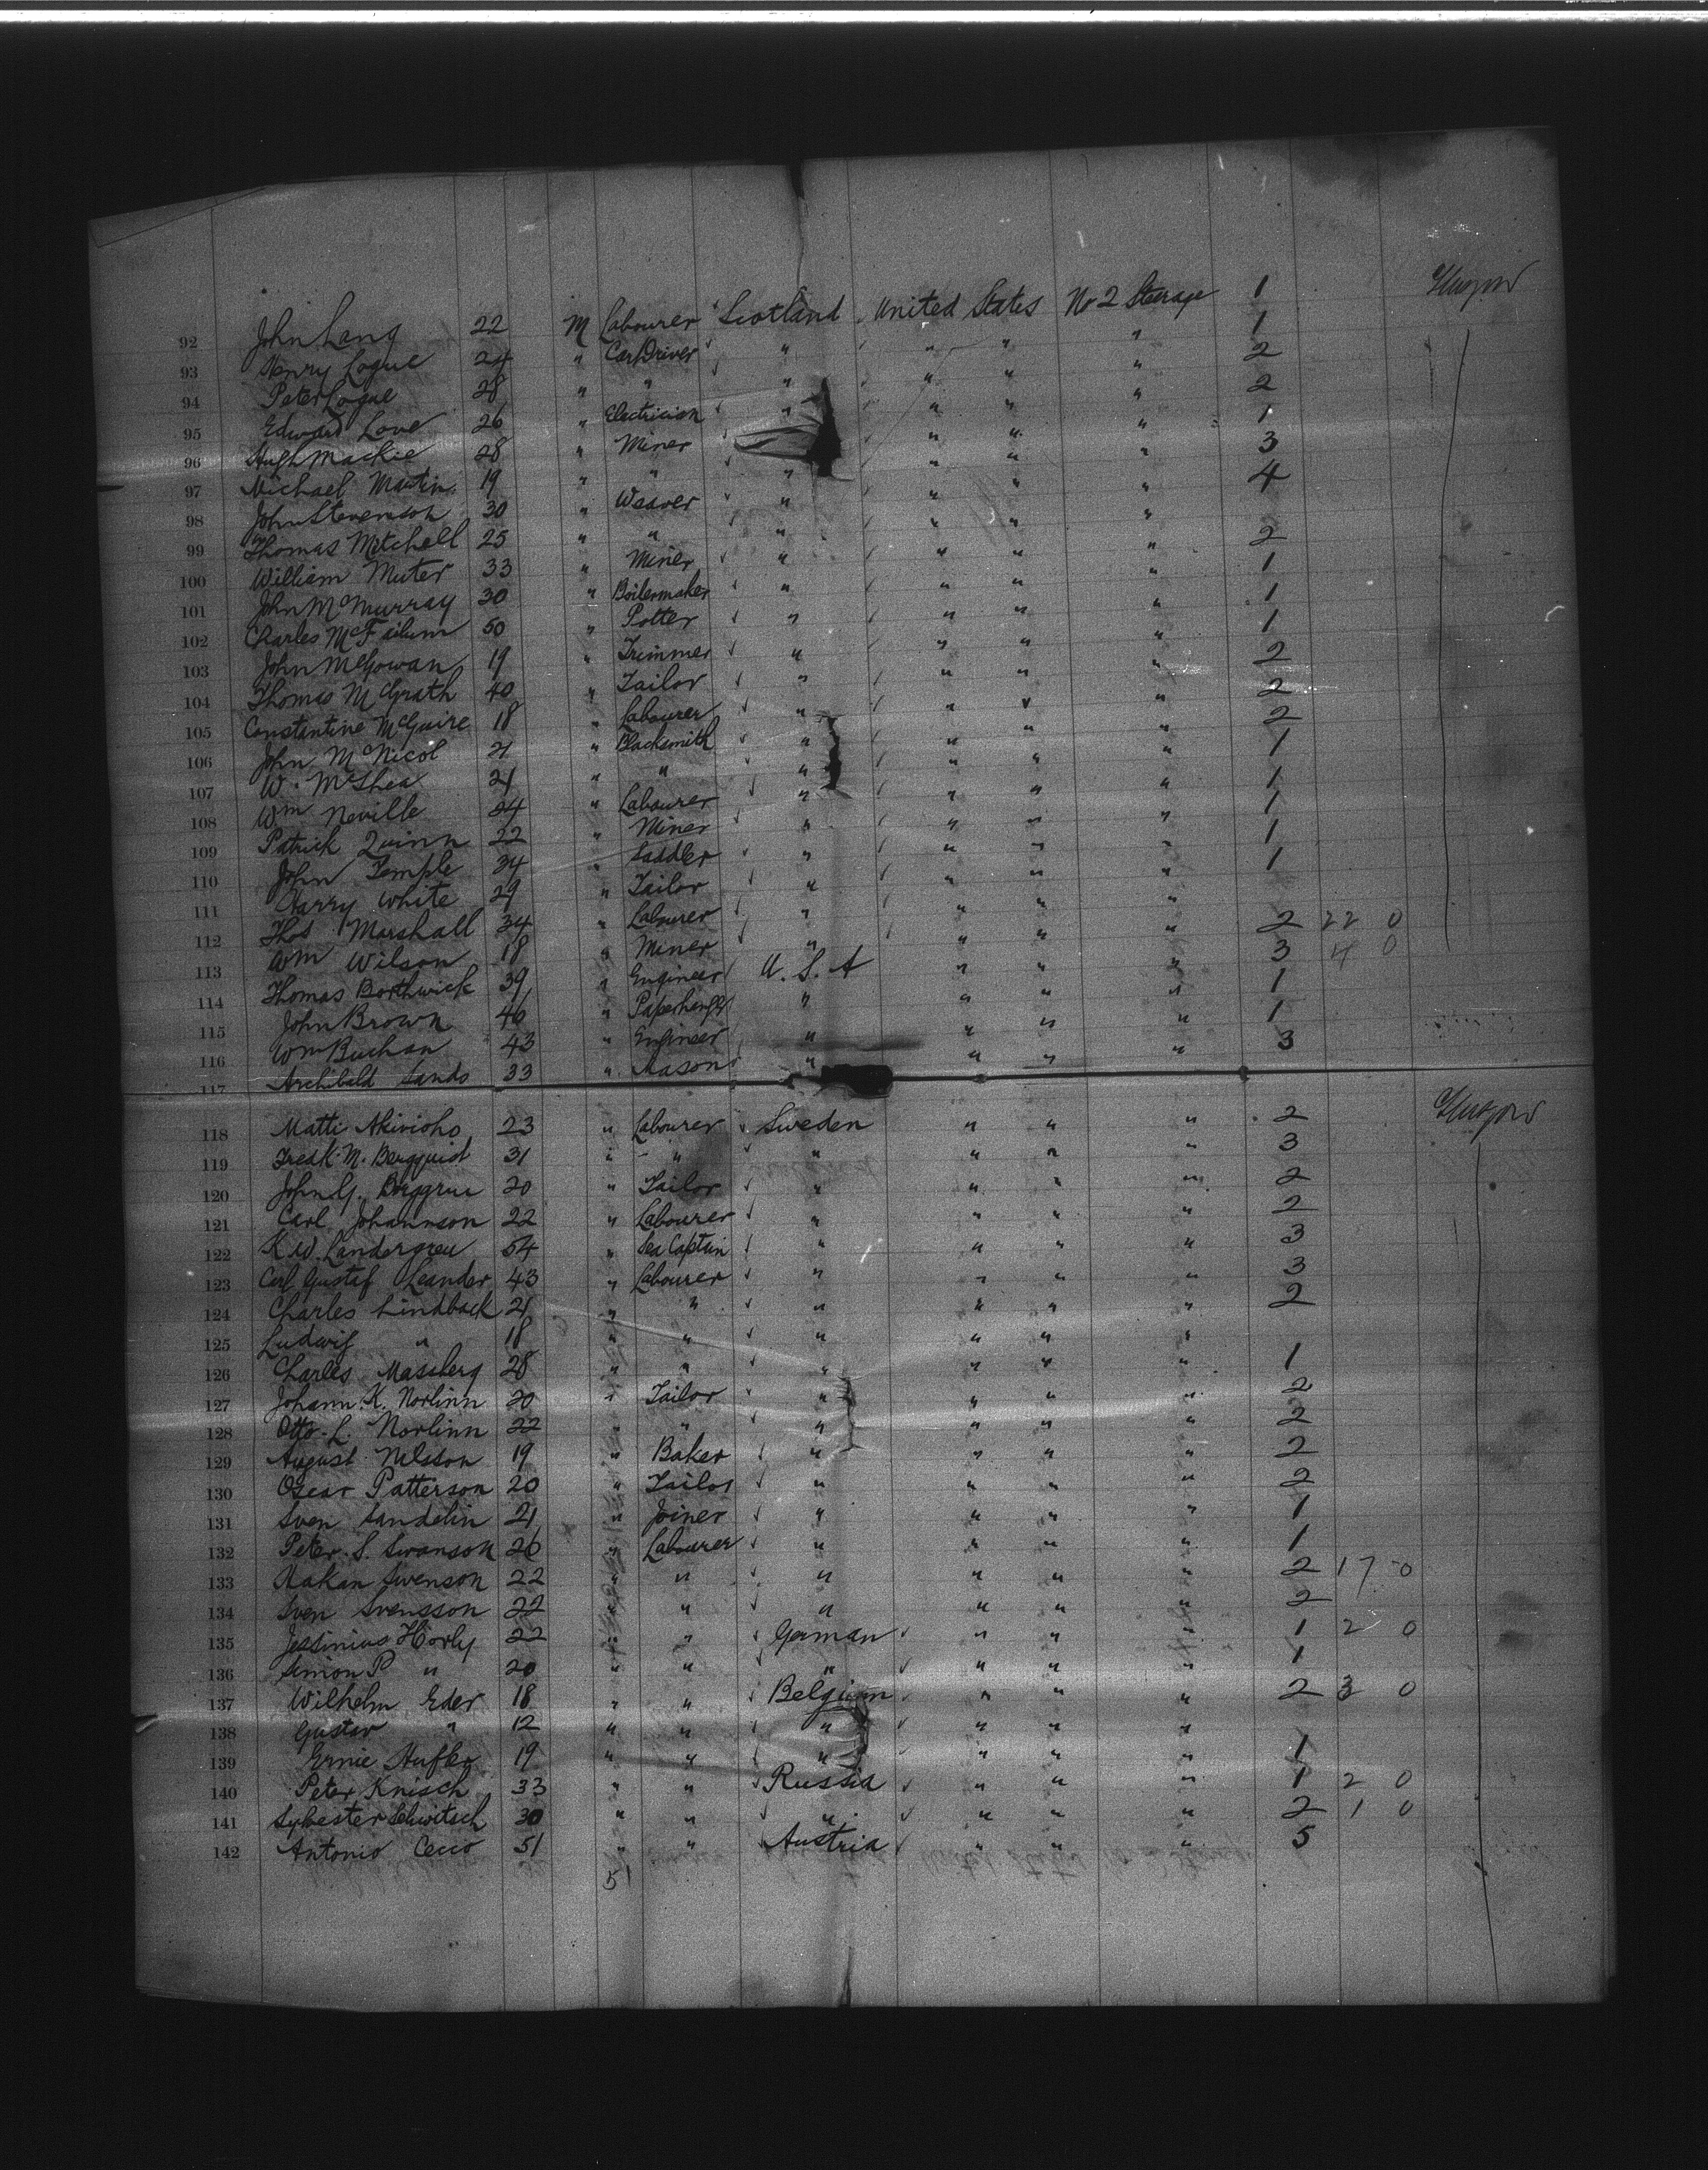 92 John Lang 22 M Labourer Scotland United States No 2 Steerage 1 Glasgow
93 Henry Logue 24 " Car Driver " " " " 1
94 Peter Logue 28 " " " " " " 2
95 Edward Love 26 " Electrician " " " " 2
96 Hugh Mackie 28 " Miner " " " " 1
97 Michael Martin 19 " " " " " " 3
98 John Stevenson 30 " Weaver " " " " 4
99 Thomas Mitchell 25 " " " " " "
100 William Muter 33 " Miner " " " " 2
101 John McMurray 30 " Boilermaker " " " " 1
102 Charles McFailum 50 " Potter " " " " 1
103 John McGowan 19 " Trimmer " " " " 1
104 Thomas McGrath 40 " Tailor " " " " 2
105 Constantine McGuire 18 " Labourer " " " " 2
106 John McNicol 21 " Blacksmith " " " " 2
107 W. McShea 21 " " " " " " 1
108 Wm Neville 24 " Labourer " " " " 1
109 Patrick Quinn 22 " Miner " " " " 1
110 John Temple 34 " Saddler " " " " 1
111 Harry White 29 " Tailor " " " " 1
112 Thos Marshall 34 " Labourer " " " " 2 22 0
113 Wm Wilson 18 " Miner " " " " 3 4 0
114 Thomas Borthwick 39 " Engineer U.S.A " " " 1
115 John Brown 46 " " " " " 1
116 Wm Buchan 43 " Engineer " " " " 3
117 Archibald Sands 33 " Mason " " " "
118 Matti 23 " Labourer Sweden " " " 2 Glasgow
119 Fredk M. Bergquist 31 " " " " " " 3
120 John G. 20 " Tailor " " " " 2
121 Carl Johannson 22 " Labourer " " " " 2
122 K.W. Landergreu 54 " Sea Captain " " " " 3
123 Carl Gustaf Leander 43 " Labourer " " " " 3
124 Charles Lindback 21 " " " " " " 2
125 Ludwig " 18 " " " " " "
126 Charles Massberg 28 " " " " " " 1
127 Johann K. Norlinn 20 " Tailor " " " " 2
128 Otto L. Norlinn 22 " " " " " " 2
129 August Nilsson 19 " Baker " " " " 2
130 Oscar Patterson 20 " Tailor " " " " 2
131 Sven Sandelin 21 " Joiner " " " " 1
132 Peter S. Swanson 26 " Labourer " " " " 1
133 Hakan Swenson 22 " " " " " " 2 17 0
134 Sven Svensson 22 " " " " " " 2
135 Horly 22 " " German " " " 1 2 0
136 Simon P " 20 " " " " " " 1
137 Wilhelm Eder 18 " " Belgium " " " 2 3 0
138 Gustav " 12 " " " " " "
139 Ernie 19 " " " " " " 1
140 Peter Knisch 33 " " Russia " " " 1 2 0
141 Sylvester 30 " " " " " " 2 1 0
142 Antonio Cecco 51 " " Austria " " " 5
5